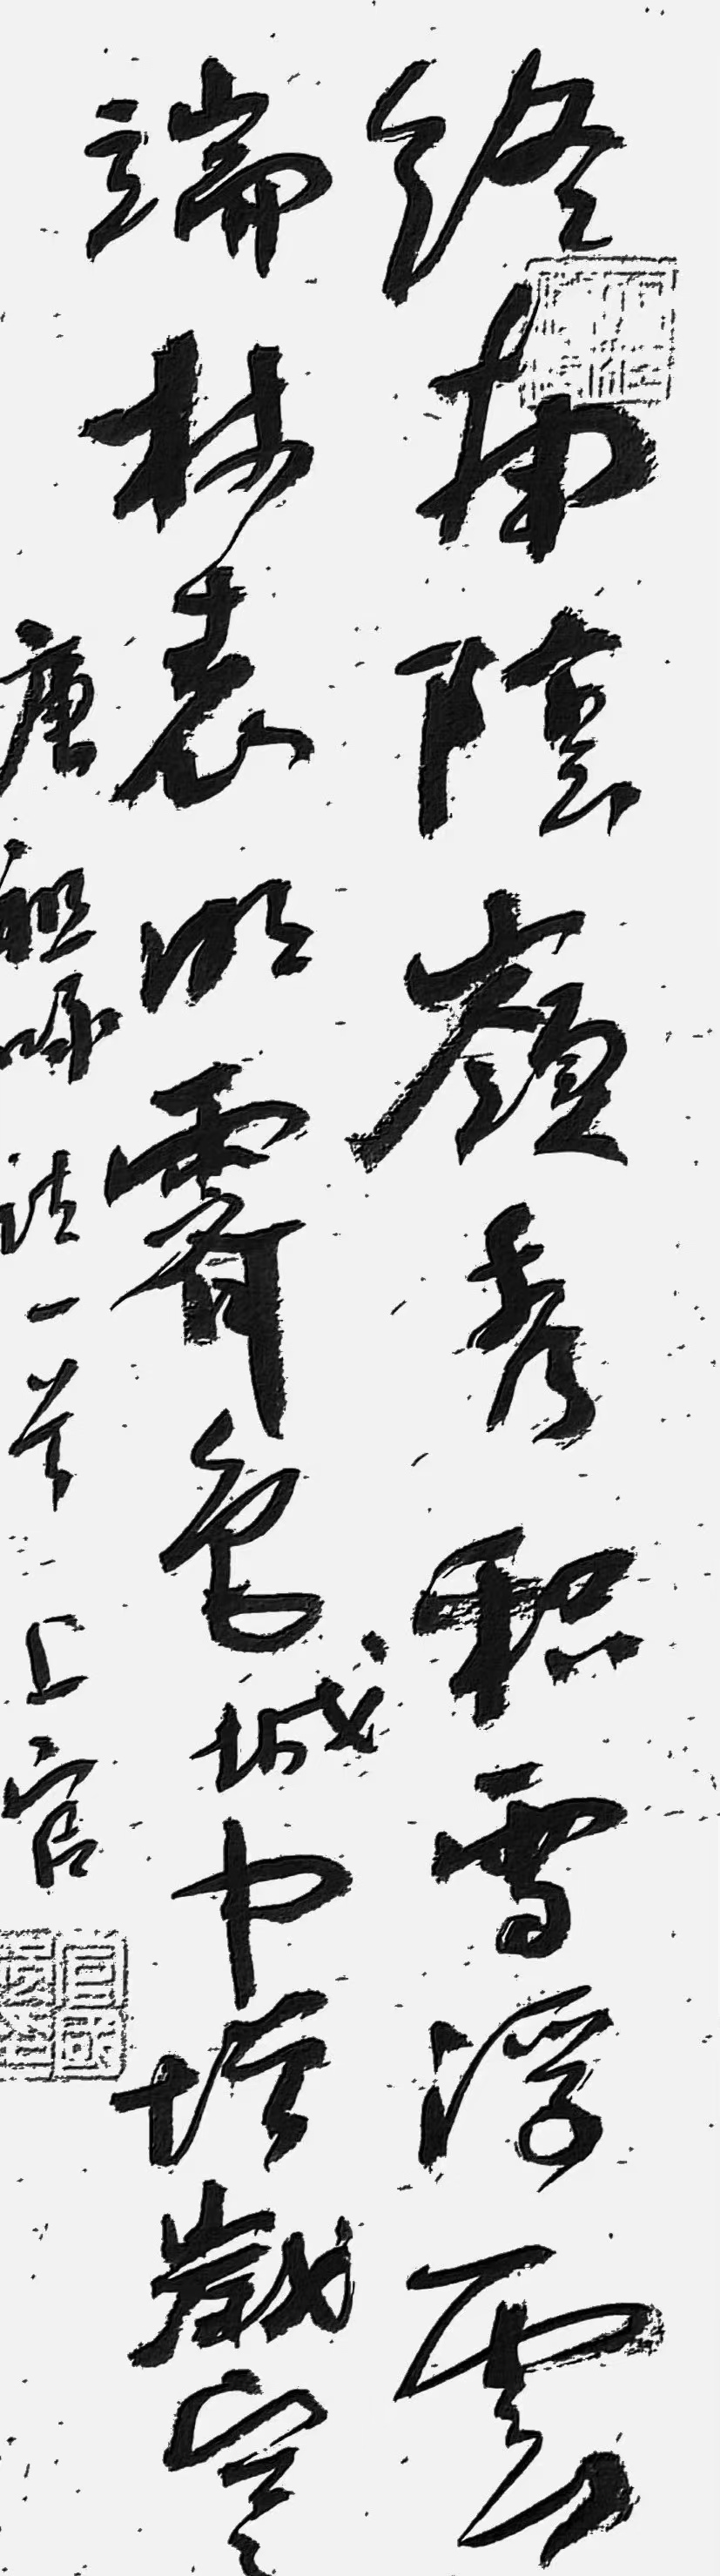 終南陰嶺秀积雪浮雲
端林表明霽色城中增歲寒
唐祖咏诗一首 上官